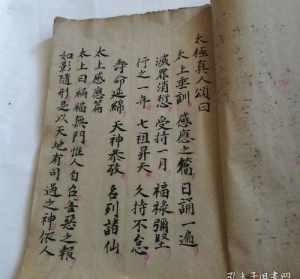 太極真人頌曰
太上垂訓 感應之篇 日誦一遍
滅罪消愆 受持一月 福祿彌堅
行之一年 七祖昇天 久持不怠
壽命延綿 天神恭敬 名列諸仙
太上感應篇
太上曰禍福無門惟人自召善惡之報
如影隨形是以天地有司過之神依人
孔夫子旧书网